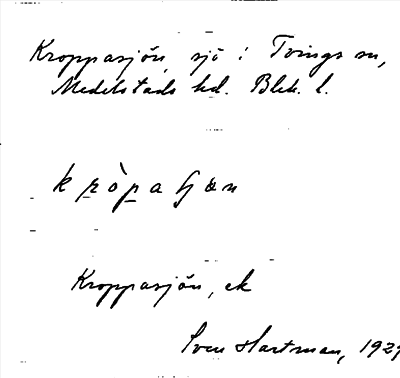 Kroppasjön, sjö i Tvings sn,
Medelstads hd. Blek. l.
kròpaʃɶn
Kroppasjön, ek
Sven Hartman, 192